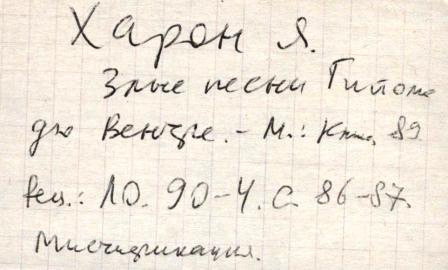 Харон Я.
Злые песни Гийома
дю Вентре. – М.: Книга, 89
Рец.: ЛО. 90-4. С. 86-87.
Мистификация.